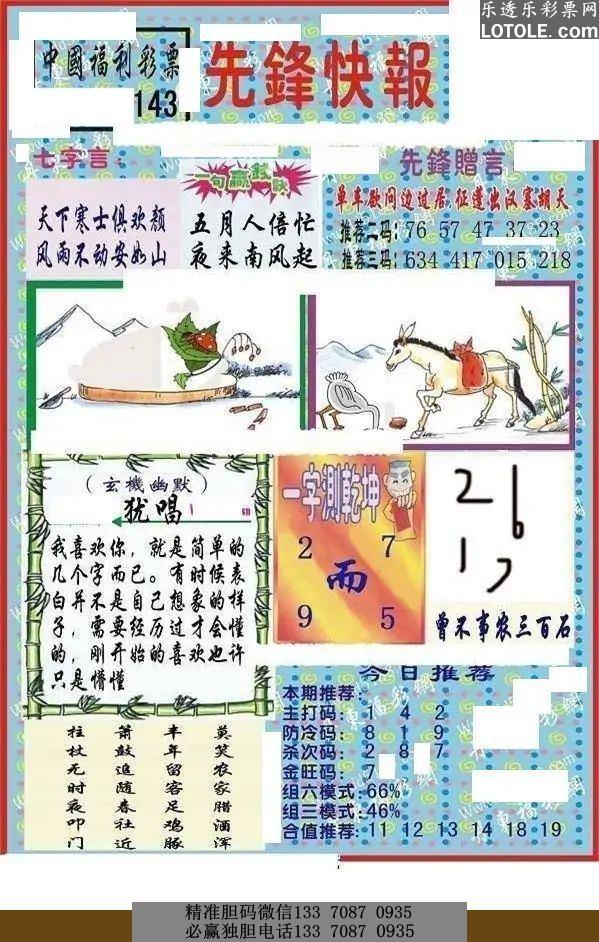 乐透乐彩票网
LOTOLE.COM
中國福利彩票
143
先鋒快報
七字言：
天下寒士俱欢颜
风雨不动安如山
一句赢錢訣
五月人倍忙
夜来南风起
先鋒贈言
单车欲问边过居,征蓬出汉塞胡天
推荐二码：76 57 47 37 23
推荐三码：634 417 015 218
（玄機幽默）
犹唱
我喜欢你，就是简单的
几个字而已。有时候表
白并不是自己想象的样
子，需要经历过才会懂
的，刚开始的喜欢也许
只是懵懂
一字測乾坤
2 7
而
9 5
2 6
1 7
曾不事农三百石
今日推荐
本期推荐：
主打码：1 4 2
防冷码：8 1 9
杀次码：2 8 7
金旺码：7
组六模式：66%
组三模式：46%
合值推荐：11 12 13 14 18 19
莫笑农家腊酒浑
丰年留客足鸡豚
萧鼓追随春社近
拄杖无时夜叩门
精准胆码微信133 7087 0935
必赢独胆电话133 7087 0935